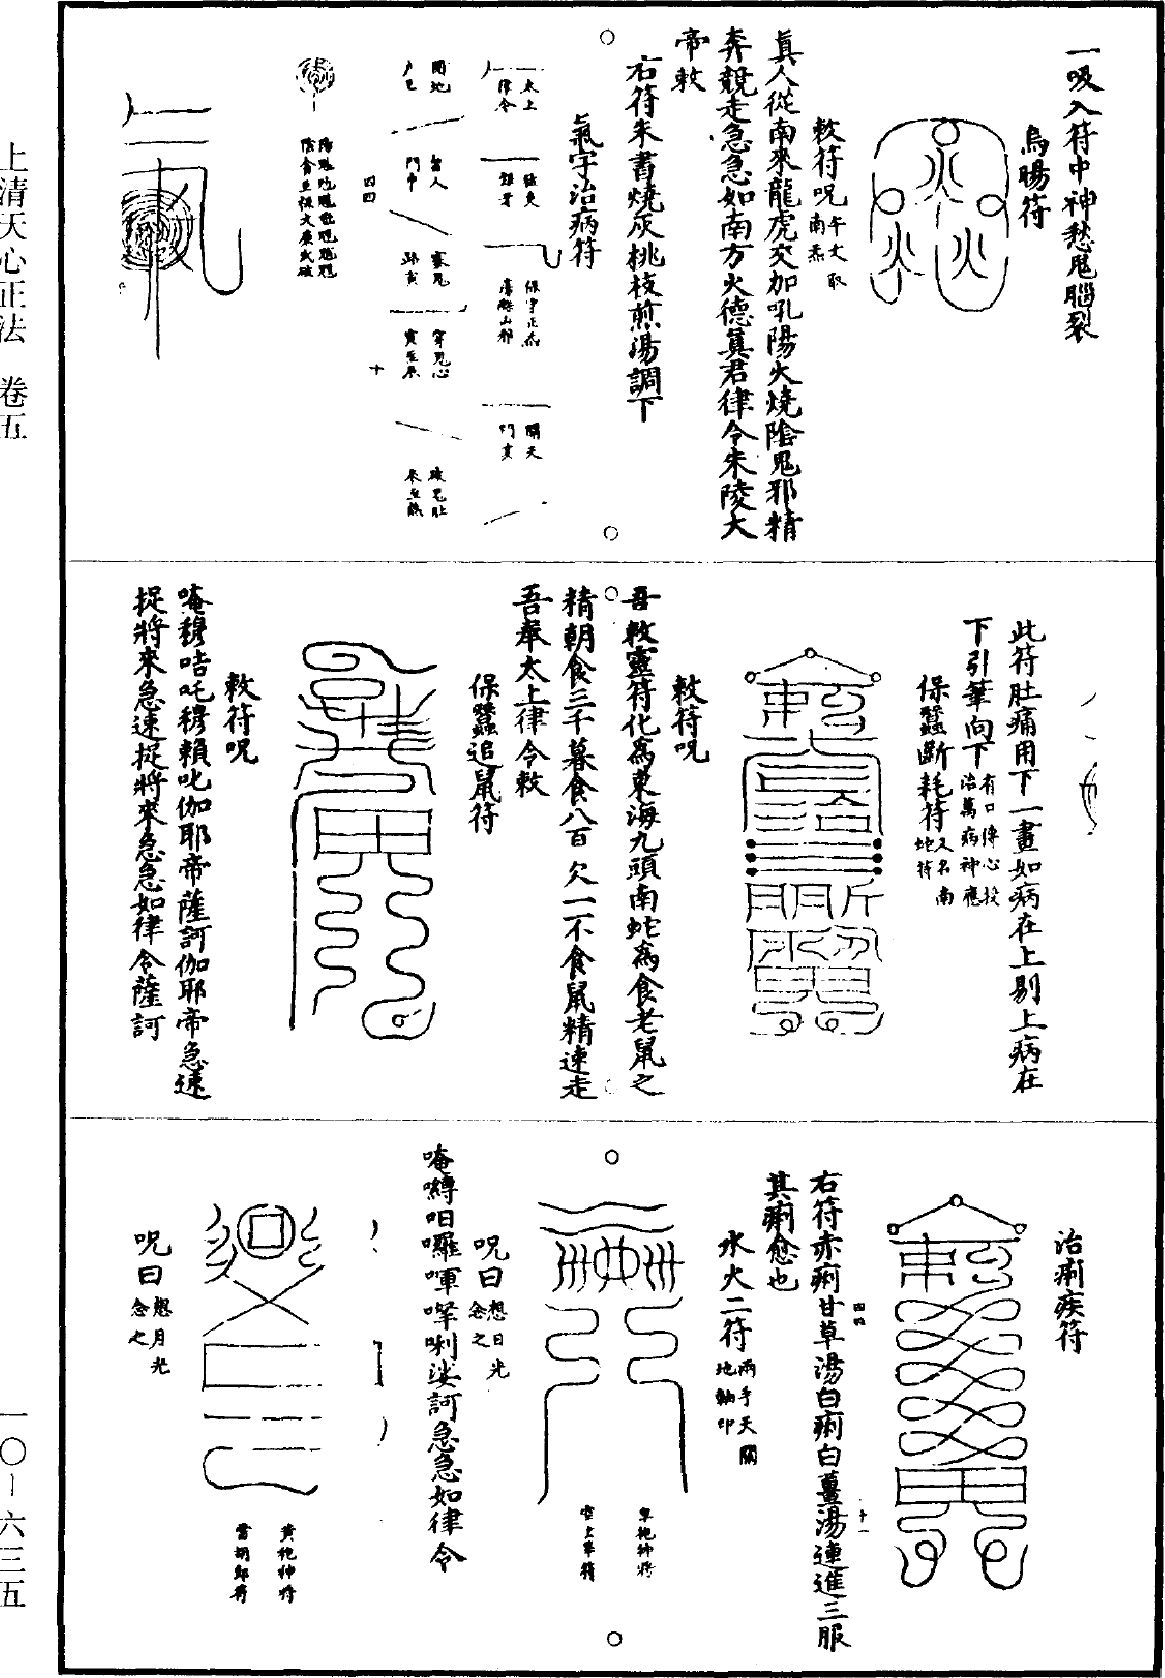 一吸入符中神愁鬼腦裂
烏暘符
敕符呪
午文取
南炁
真人從南來龍虎交加吼陽火燒陰鬼邪精
奔競走急急如南方火德真君律令朱陵大
帝敕
右符朱書燒灰桃枝煎湯調下
氣字治病符
太上
律令
開天
門
開地
戶
四四
十
此符肚痛用下一畫如病在上剔上病在
下引筆向下
有口傳心授
治萬病神應
保蠶斷耗符
又名南
虵符
敕符呪
吾敕靈符化為東海九頭南蛇為食老鼠之
精朝食三千暮食八百欠一不食鼠精速走
吾奉太上律令敕
保蠶追鼠符
敕符呪
唵穆咭吒穆賴叱伽耶帝薩訶伽耶帝急速
捉將來急速捉將來急急如律令薩訶
治痢疾符
右符赤痢甘草湯白痢白薑湯連進三服
其痢愈也
四四
十一
水火二符
兩手天關
地軸印
皂袍神將
呪曰
想日光
念之
唵嚩呬囉㖶㗚唎娑訶急急如律令
黃袍神將
呪曰
想月光
念之
上清天心正法　卷五
一〇—六三五